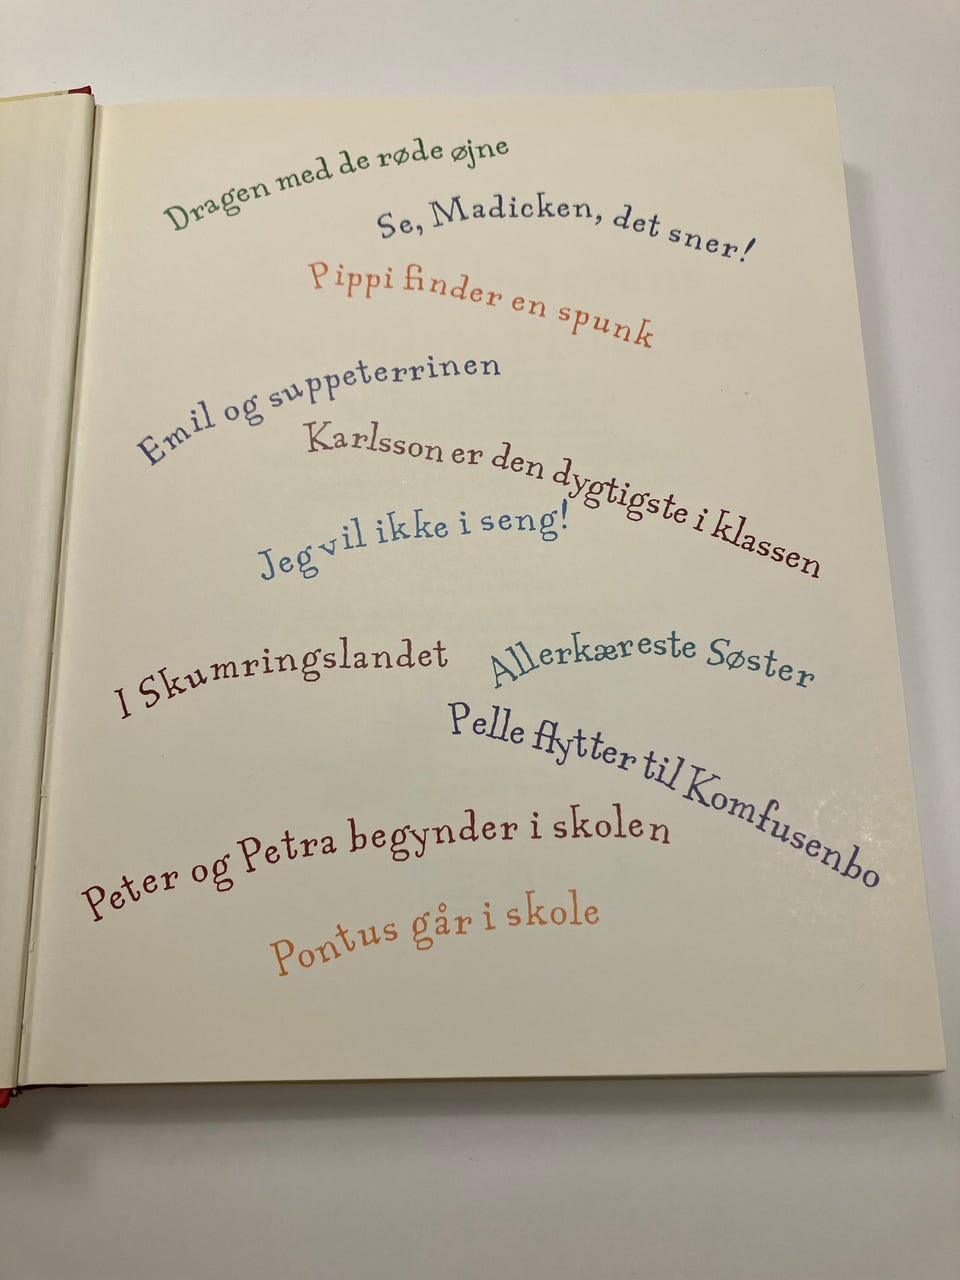 Dragen med de røde øjne
Se, Madicken, det sner!
Pippi finder en spunk
Emil og suppeterrinen
Karlsson er den dygtigste i klassen
Jeg vil ikke i seng!
I Skumringslandet
Allerkæreste Søster
Pelle flytter til Komfusenbo
Peter og Petra begynder i skolen
Pontus går i skole